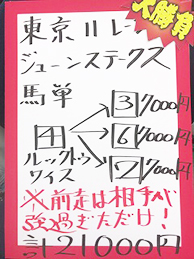 大勝負
東京11レー
ジューンステークス
馬単
3 7000円
4 6 7000円
ルックトゥ
ワイス 2 7000円
※前走は相手が
強過ぎただけ!
計21000円